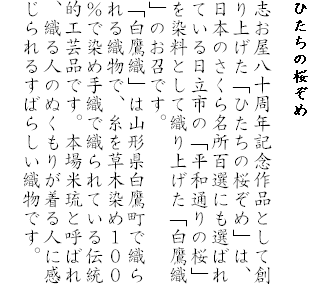 ひたちの桜ぞめ
志お屋八十周年記念作品として創
り上げた「ひたちの桜ぞめ」は、
日本のさくら名所百選にも選ばれ
ている日立市の「平和通りの桜」
を染料として織り上げた「白鷹織
」のお召です。
「白鷹織」は山形県白鷹町で織ら
れる織物で、糸を草木染め１００
％で染め手織で織られている伝統
的工芸品です。本場米琉と呼ばれ
、織る人のぬくもりが着る人に感
じられるすばらしい織物です。